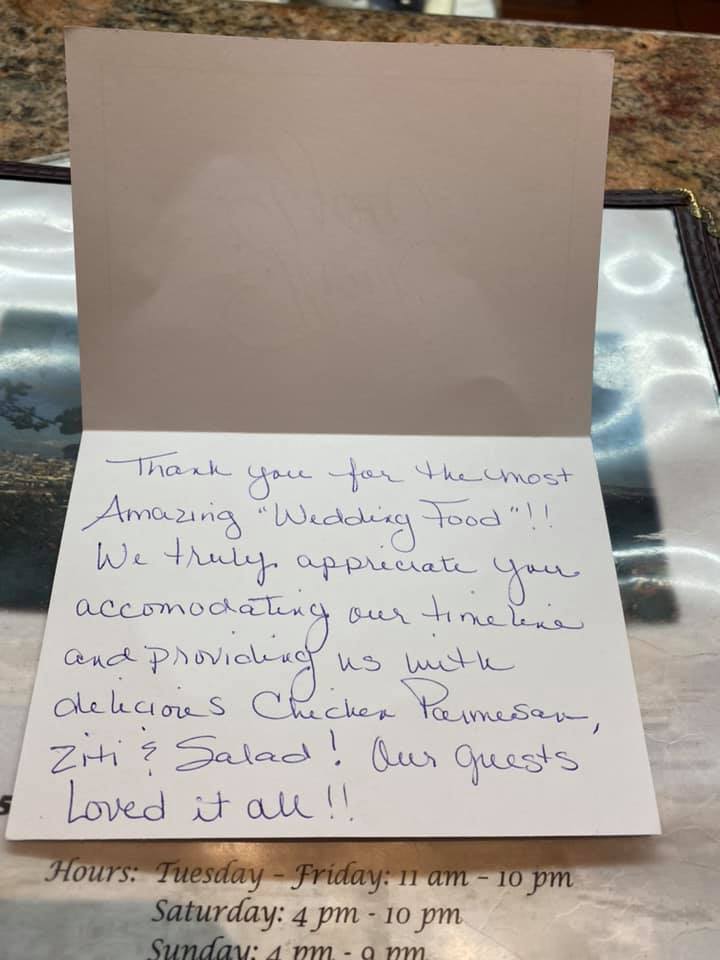 Thank you for the most
Amazing "Wedding Food"!!
We truly appreciate you
accomodating our timeline
and providing us with
delicious Chicken Parmesan,
Ziti & Salad! Our guests
Loved it all!!
Hours: Tuesday - Friday: 11 am - 10 pm
Saturday: 4 pm - 10 pm
Sunday: 4 pm - 9 pm